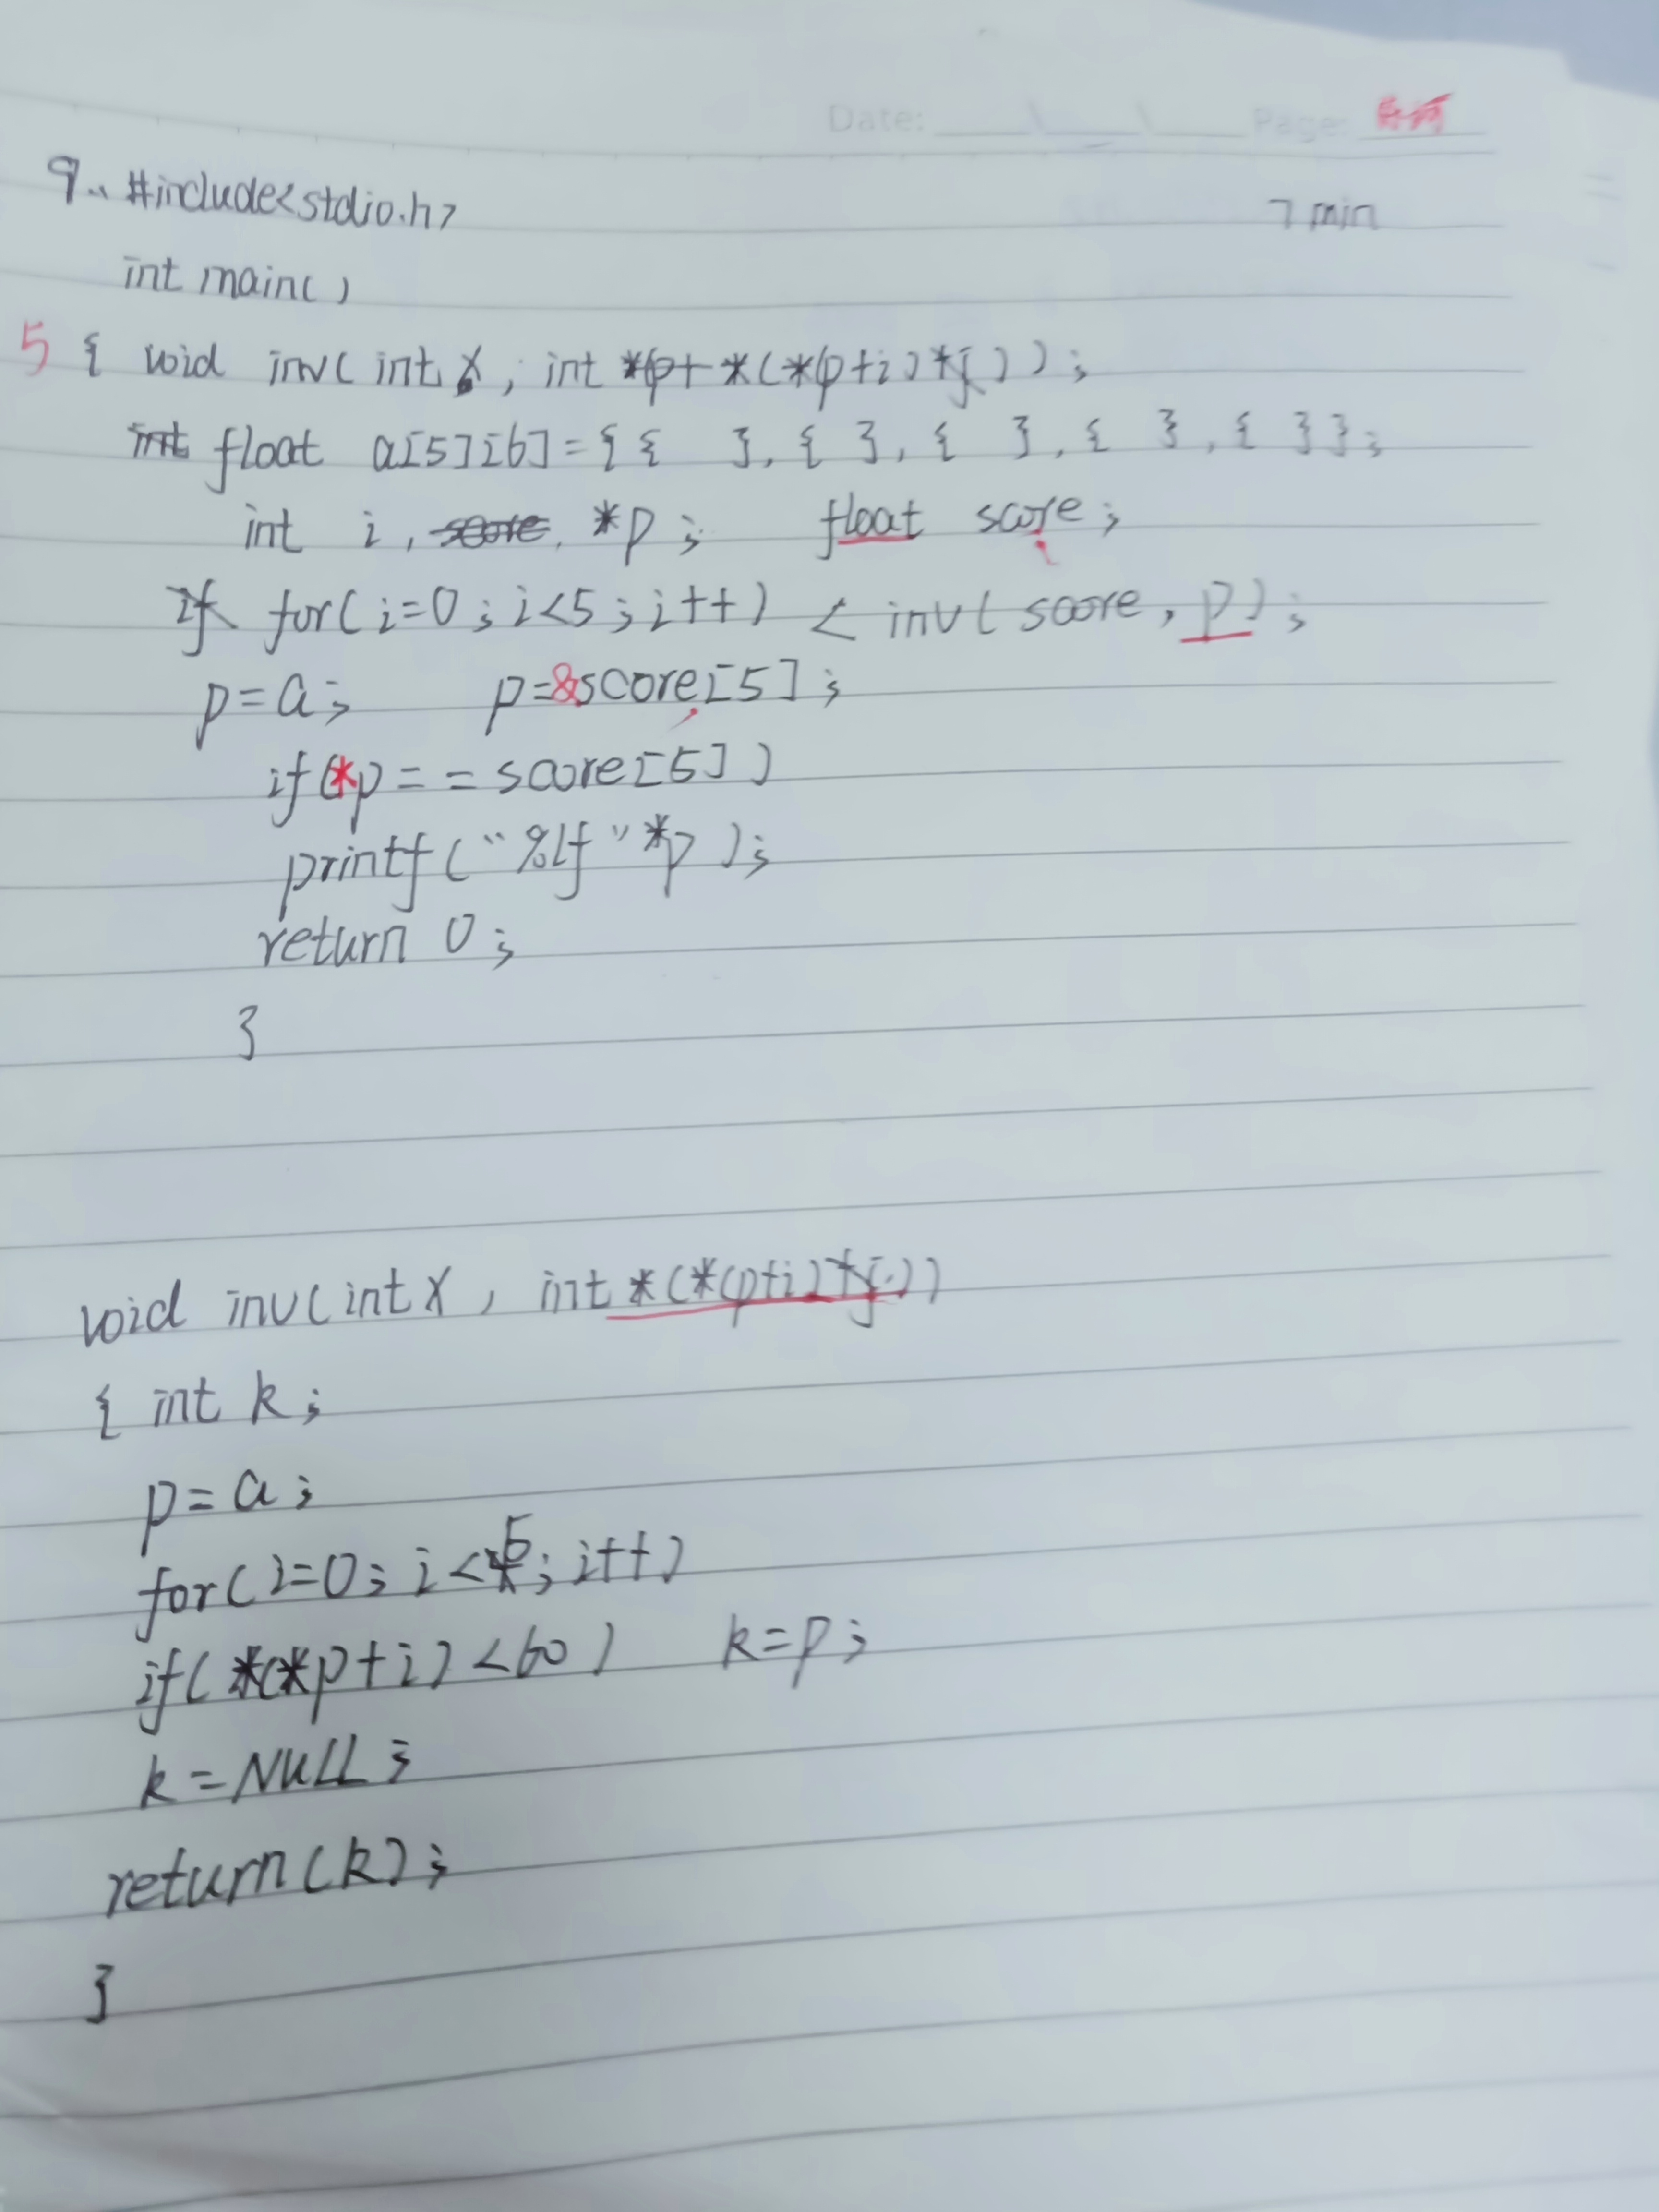 Date: Page:
9. #include<stdio.h> 7 min
int main()
5 { void inv( int x, int *(p+ *(*(p+i)+j));
int float a[5][6]={{ },{ },{ },{ },{ }};
int i, score, *p; float score;
if for(i=0;i<5;i++) < inv( score, p);
p=a; p=&score[5];
if(*p==score[5])
printf("%lf"*p);
return 0;
}
void inv(int x, int *(*(p+i)+j))
{ int k;
p=a;
for(i=0;i<5;i++)
if(*(*p+i)<60) k=p;
k=NULL;
return(k);
}